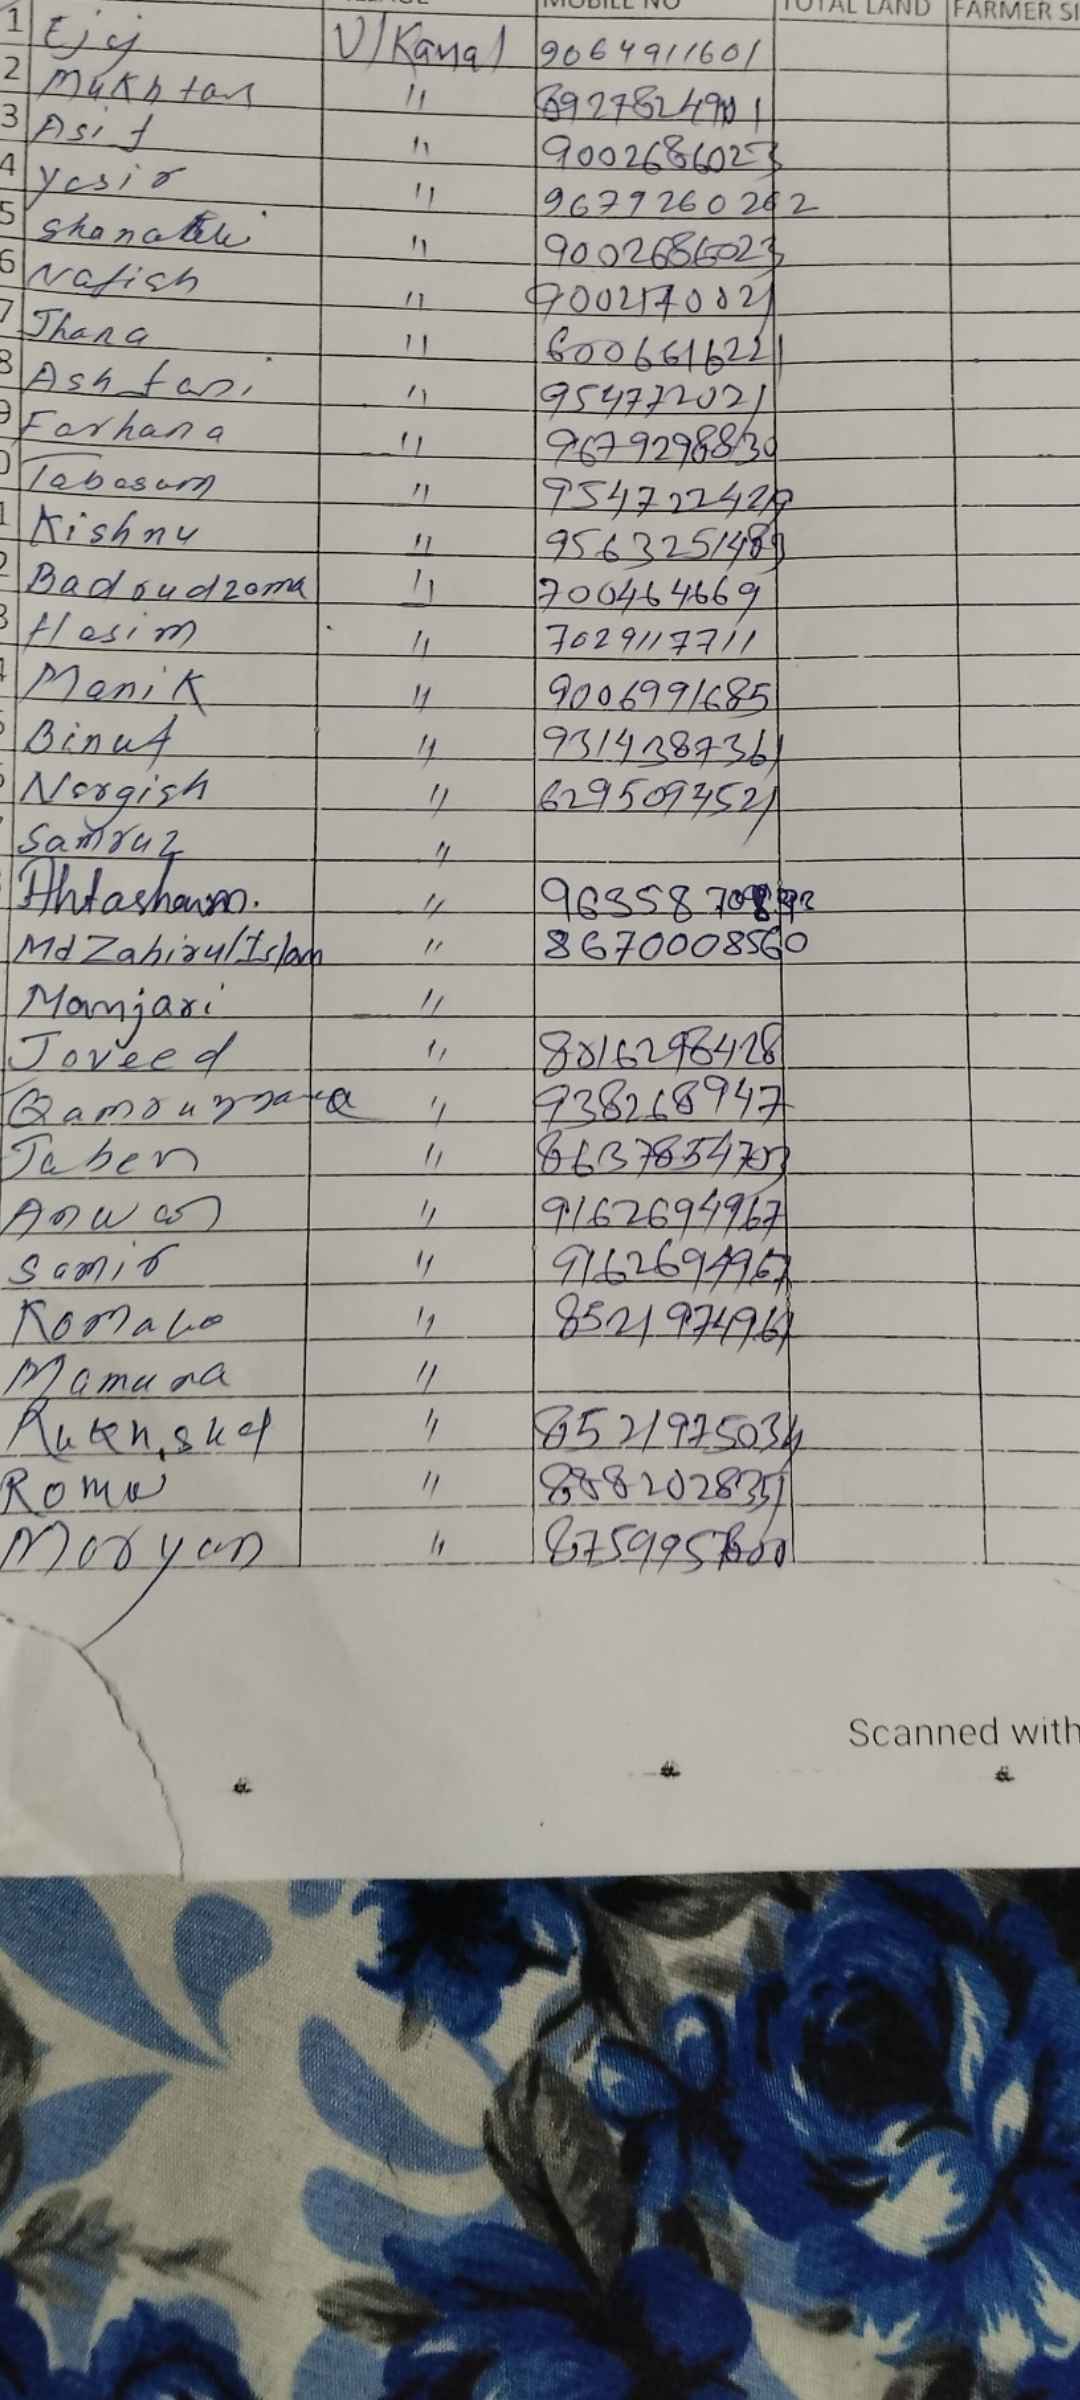 MOBILE NO TOTAL LAND FARMER SI
1 Ejaj V/Kanal 9064911601
2 Mukhtar "
3 Asif " 9002686023
4 Yasir " 9679260262
5 "  9002686023
6 Nafish " 9002170021
7 Jhana " 6006616221
8 Ashfari " 954772021
9 Farhana " 9679298830
0 Tabasum "
1 Kishnu "
2 Badrudzoma " 700464669
3 Hasim " 7029117711
4 Manik " 9006991685
5 Binut " 9314387361
6 Nargish " 6295097521
Samruz "
Ahtasham. "
Md Zahirul Islam " 8670008560
Manjari "
Javeed " 8016298428
Qamruzzama " 938268947
Jaben " 8637854703
Anwar " 9162694967
Samir " 9162694967
Komalo " 8521974967
Mamuna "
" 8521975034
Roma " 8882028351
Moryam "
Scanned with